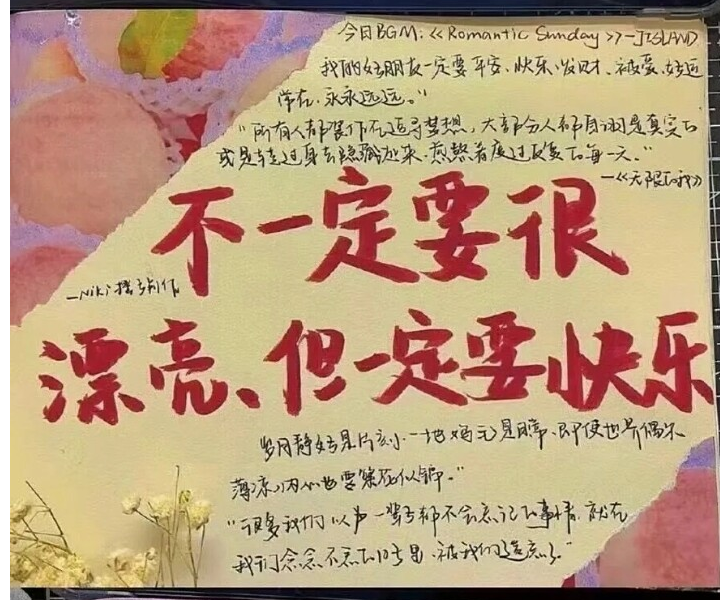 今日BGM:《Romantic Sunday》—JISLAND
我的女朋友一定要平安、快乐、发财、被爱、好运
常在、永永远远。"
"所有人都假作在追寻梦想，大部分人都自诩是真实的
或是转过身去隐藏起来，煎熬着度过反复的每一天。"
—《无限的我》
不一定要很
漂亮、但一定要快乐
岁月静好是片刻，一地鸡毛是日常，即使世界偶尔
薄凉，内心也要繁花似锦。"
"很多我们以为一辈子都不会忘记的事情，就在
我们念念不忘的日子里，被我们遗忘了。"